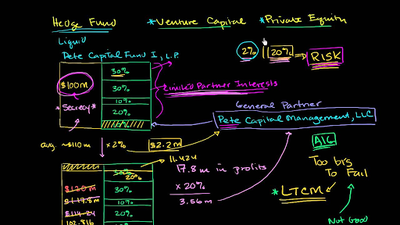 Hedge Fund
*Venture Capital
*Private Equity
Liquid
Pete Capital Fund I, L.P.
2% | 20% → RISK
30%
$100m
30%
Limited Partner Interests
*Secrecy*
10%
20%
General Partner
Pete Capital Management, LLC
avg ~$110m
x 2%
$2.2m
AIG
Too big
To Fail
11.424
17.8 m in profits
20%
$120m
30%
x 20%
10%
3.56m
* LTCM
20%
102.816
Not Good